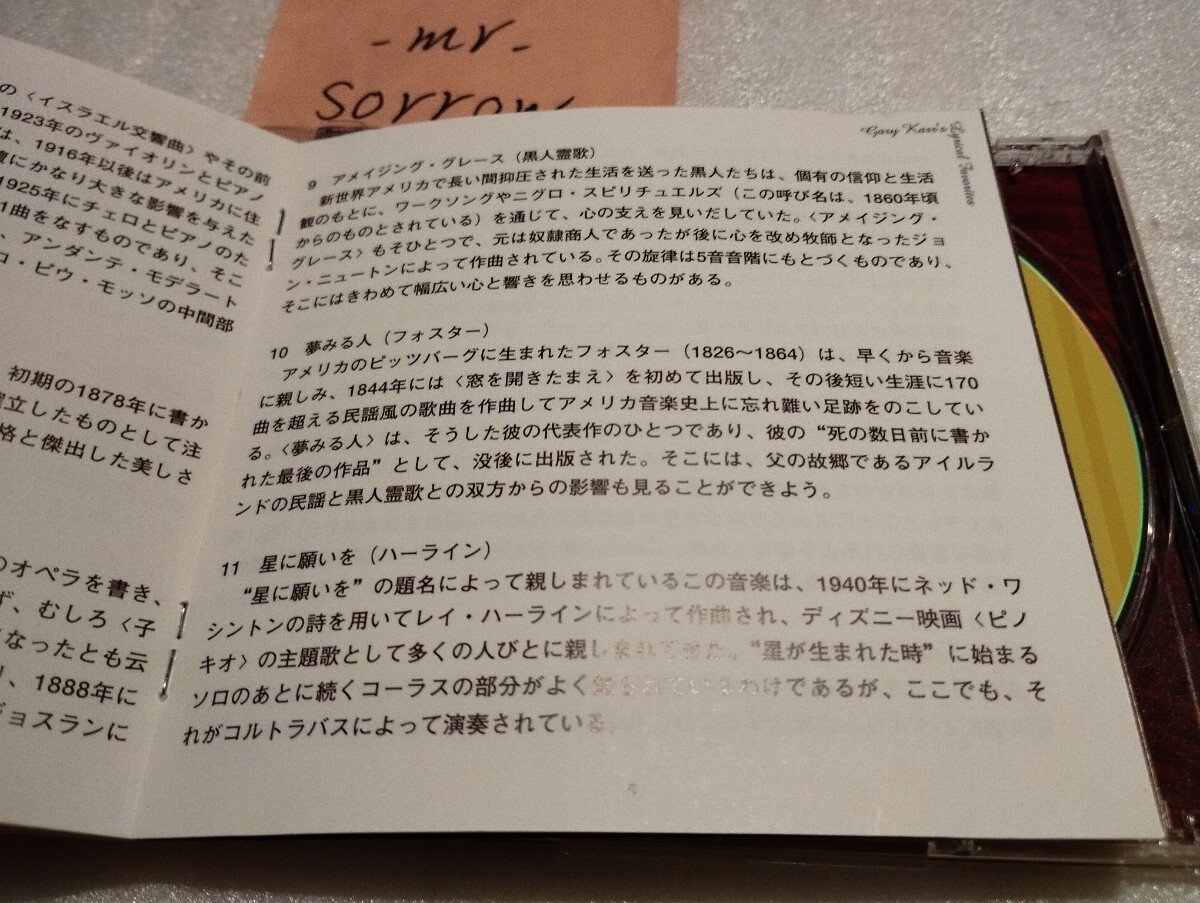 -mr-
sorrow
Gary Karr's Lyrical Favorites
の〈イスラエル交響曲〉やその前
1923年のヴァイオリンとピアノ
は、1916年以後はアメリカに住
にかなり大きな影響を与えた
1925年にチェロとピアノのた
1曲をなすものであり、そこ
、アンダンテ・モデラート
ロ・ピウ・モッソの中間部
初期の1878年に書か
立したものとして注
格と傑出した美しさ
のオペラを書き、
ず、むしろ〈子
なったとも云
、1888年に
ジョスランに
9 アメイジング・グレース（黒人霊歌）
新世界アメリカで長い間抑圧された生活を送った黒人たちは、個有の信仰と生活
観のもとに、ワークソングやニグロ・スピリチュエルズ（この呼び名は、1860年頃
からのものとされている）を通じて、心の支えを見いだしていた。〈アメイジング・
グレース〉もそひとつで、元は奴隷商人であったが後に心を改め牧師となったジョ
ン・ニュートンによって作曲されている。その旋律は5音音階にもとづくものであり、
そこにはきわめて幅広い心と響きを思わせるものがある。
10 夢みる人（フォスター）
アメリカのピッツバーグに生まれたフォスター（1826～1864）は、早くから音楽
に親しみ、1844年には〈窓を開きたまえ〉を初めて出版し、その後短い生涯に170
曲を超える民謡風の歌曲を作曲してアメリカ音楽史上に忘れ難い足跡をのこしてい
る。〈夢みる人〉は、そうした彼の代表作のひとつであり、彼の“死の数日前に書か
れた最後の作品”として、没後に出版された。そこには、父の故郷であるアイルラ
ンドの民謡と黒人霊歌との双方からの影響も見ることができよう。
11 星に願いを（ハーライン）
“星に願いを”の題名によって親しまれているこの音楽は、1940年にネッド・ワ
シントンの詩を用いてレイ・ハーラインによって作曲され、ディズニー映画〈ピノ
キオ〉の主題歌として多くの人びとに親しまれてきた。“星が生まれた時”に始まる
ソロのあとに続くコーラスの部分がよく知られているわけであるが、ここでも、そ
れがコルトラバスによって演奏されている。